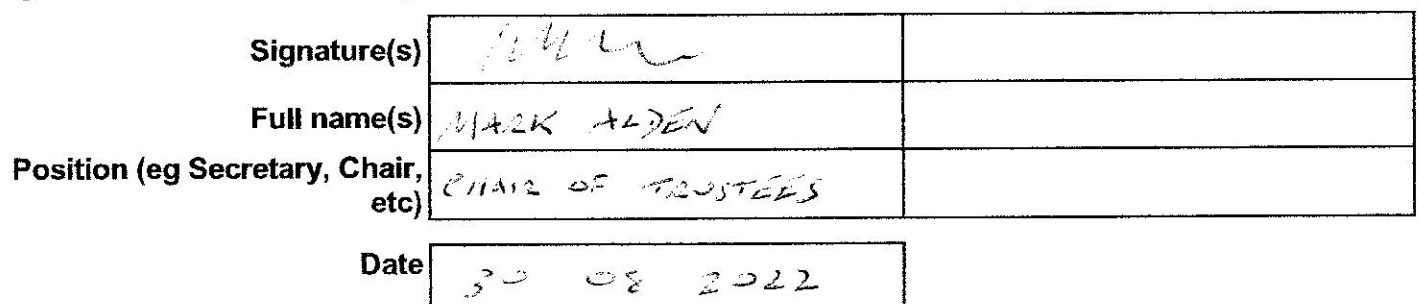 Signature(s)
Full name(s) MARK ALDEN
Position (eg Secretary, Chair,
etc) CHAIR OF TRUSTEES
Date 30 08 2022